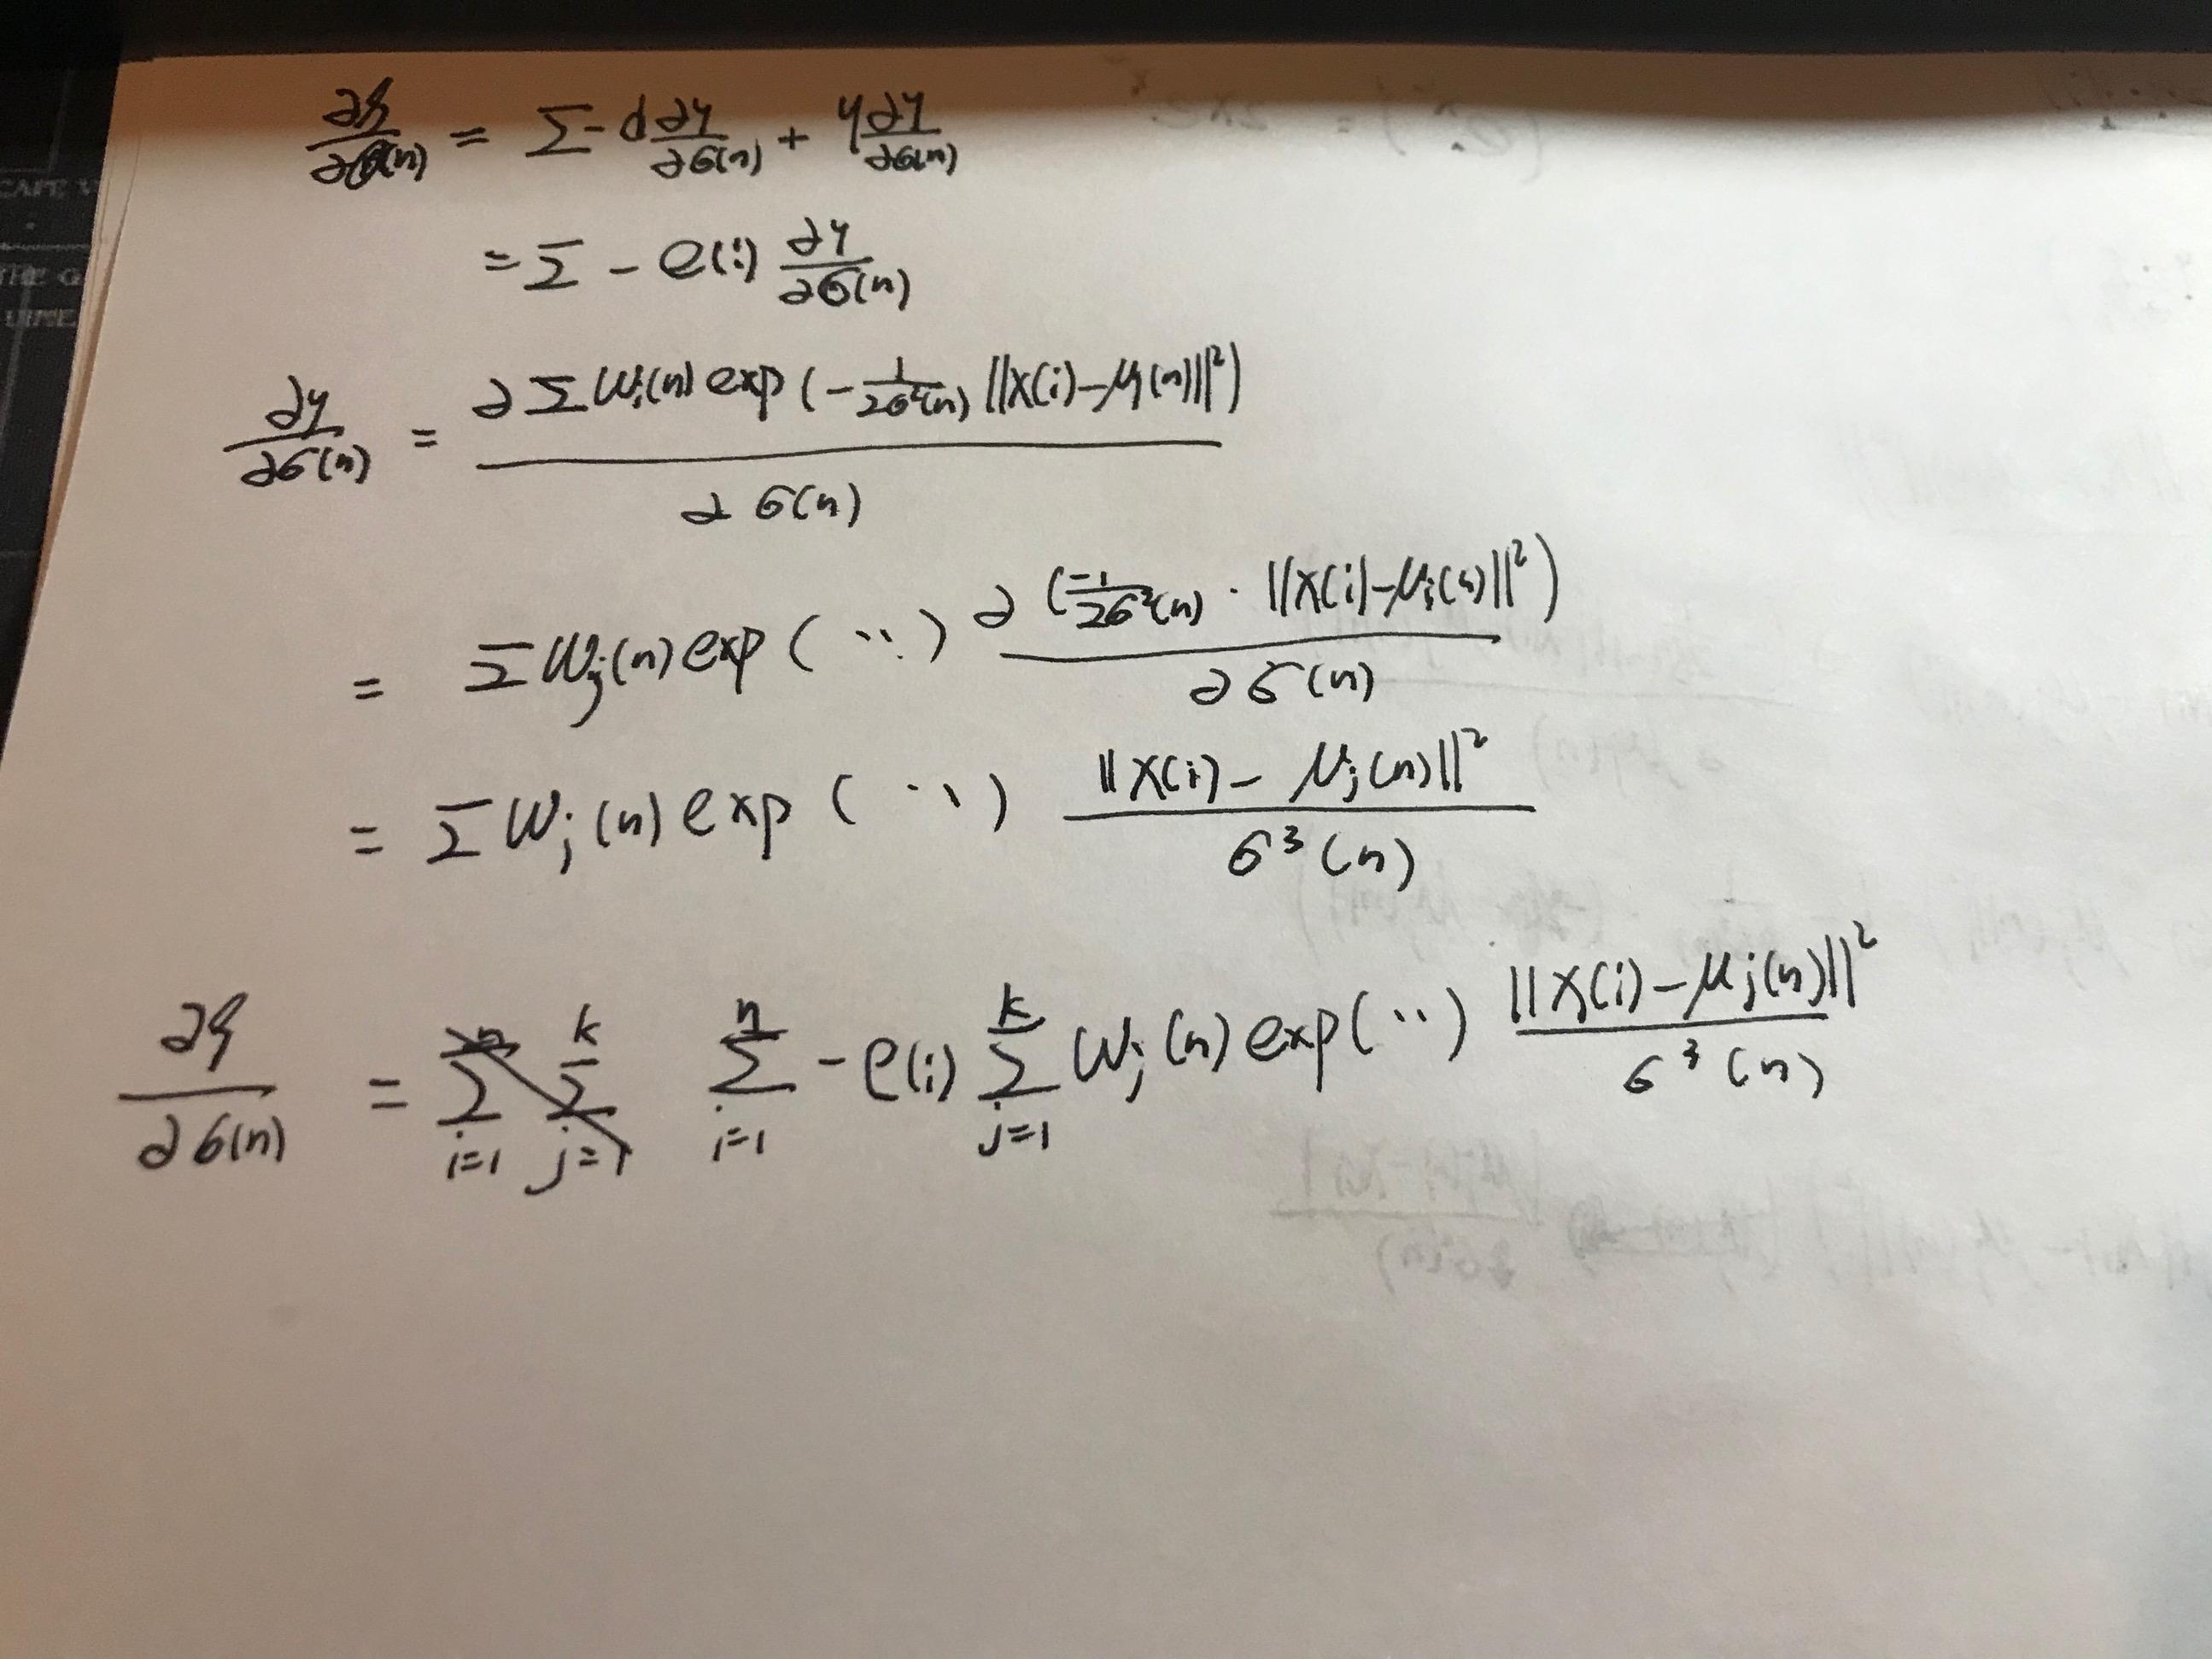 ∂ξ/∂σ(n) = Σ -d ∂y/∂σ(n) + y ∂y/∂σ(n)
= Σ - e(i) ∂y/∂σ(n)
∂y/∂σ(n) = ∂ Σ wᵢ(n) exp(-1/2σ²(n) ||x(i)-μj(n)||²) / ∂σ(n)
= Σ wj(n) exp(⋯) ∂(-1/2σ²(n) · ||x(i)-μj(n)||²) / ∂σ(n)
= Σ wj(n) exp(⋯) ||x(i)-μj(n)||² / σ³(n)
∂ξ/∂σ(n) = Σ i=1 Σ k j=1 Σ n i=1 -e(i) Σ k j=1 wj(n) exp(⋯) ||x(i)-μj(n)||² / σ³(n)